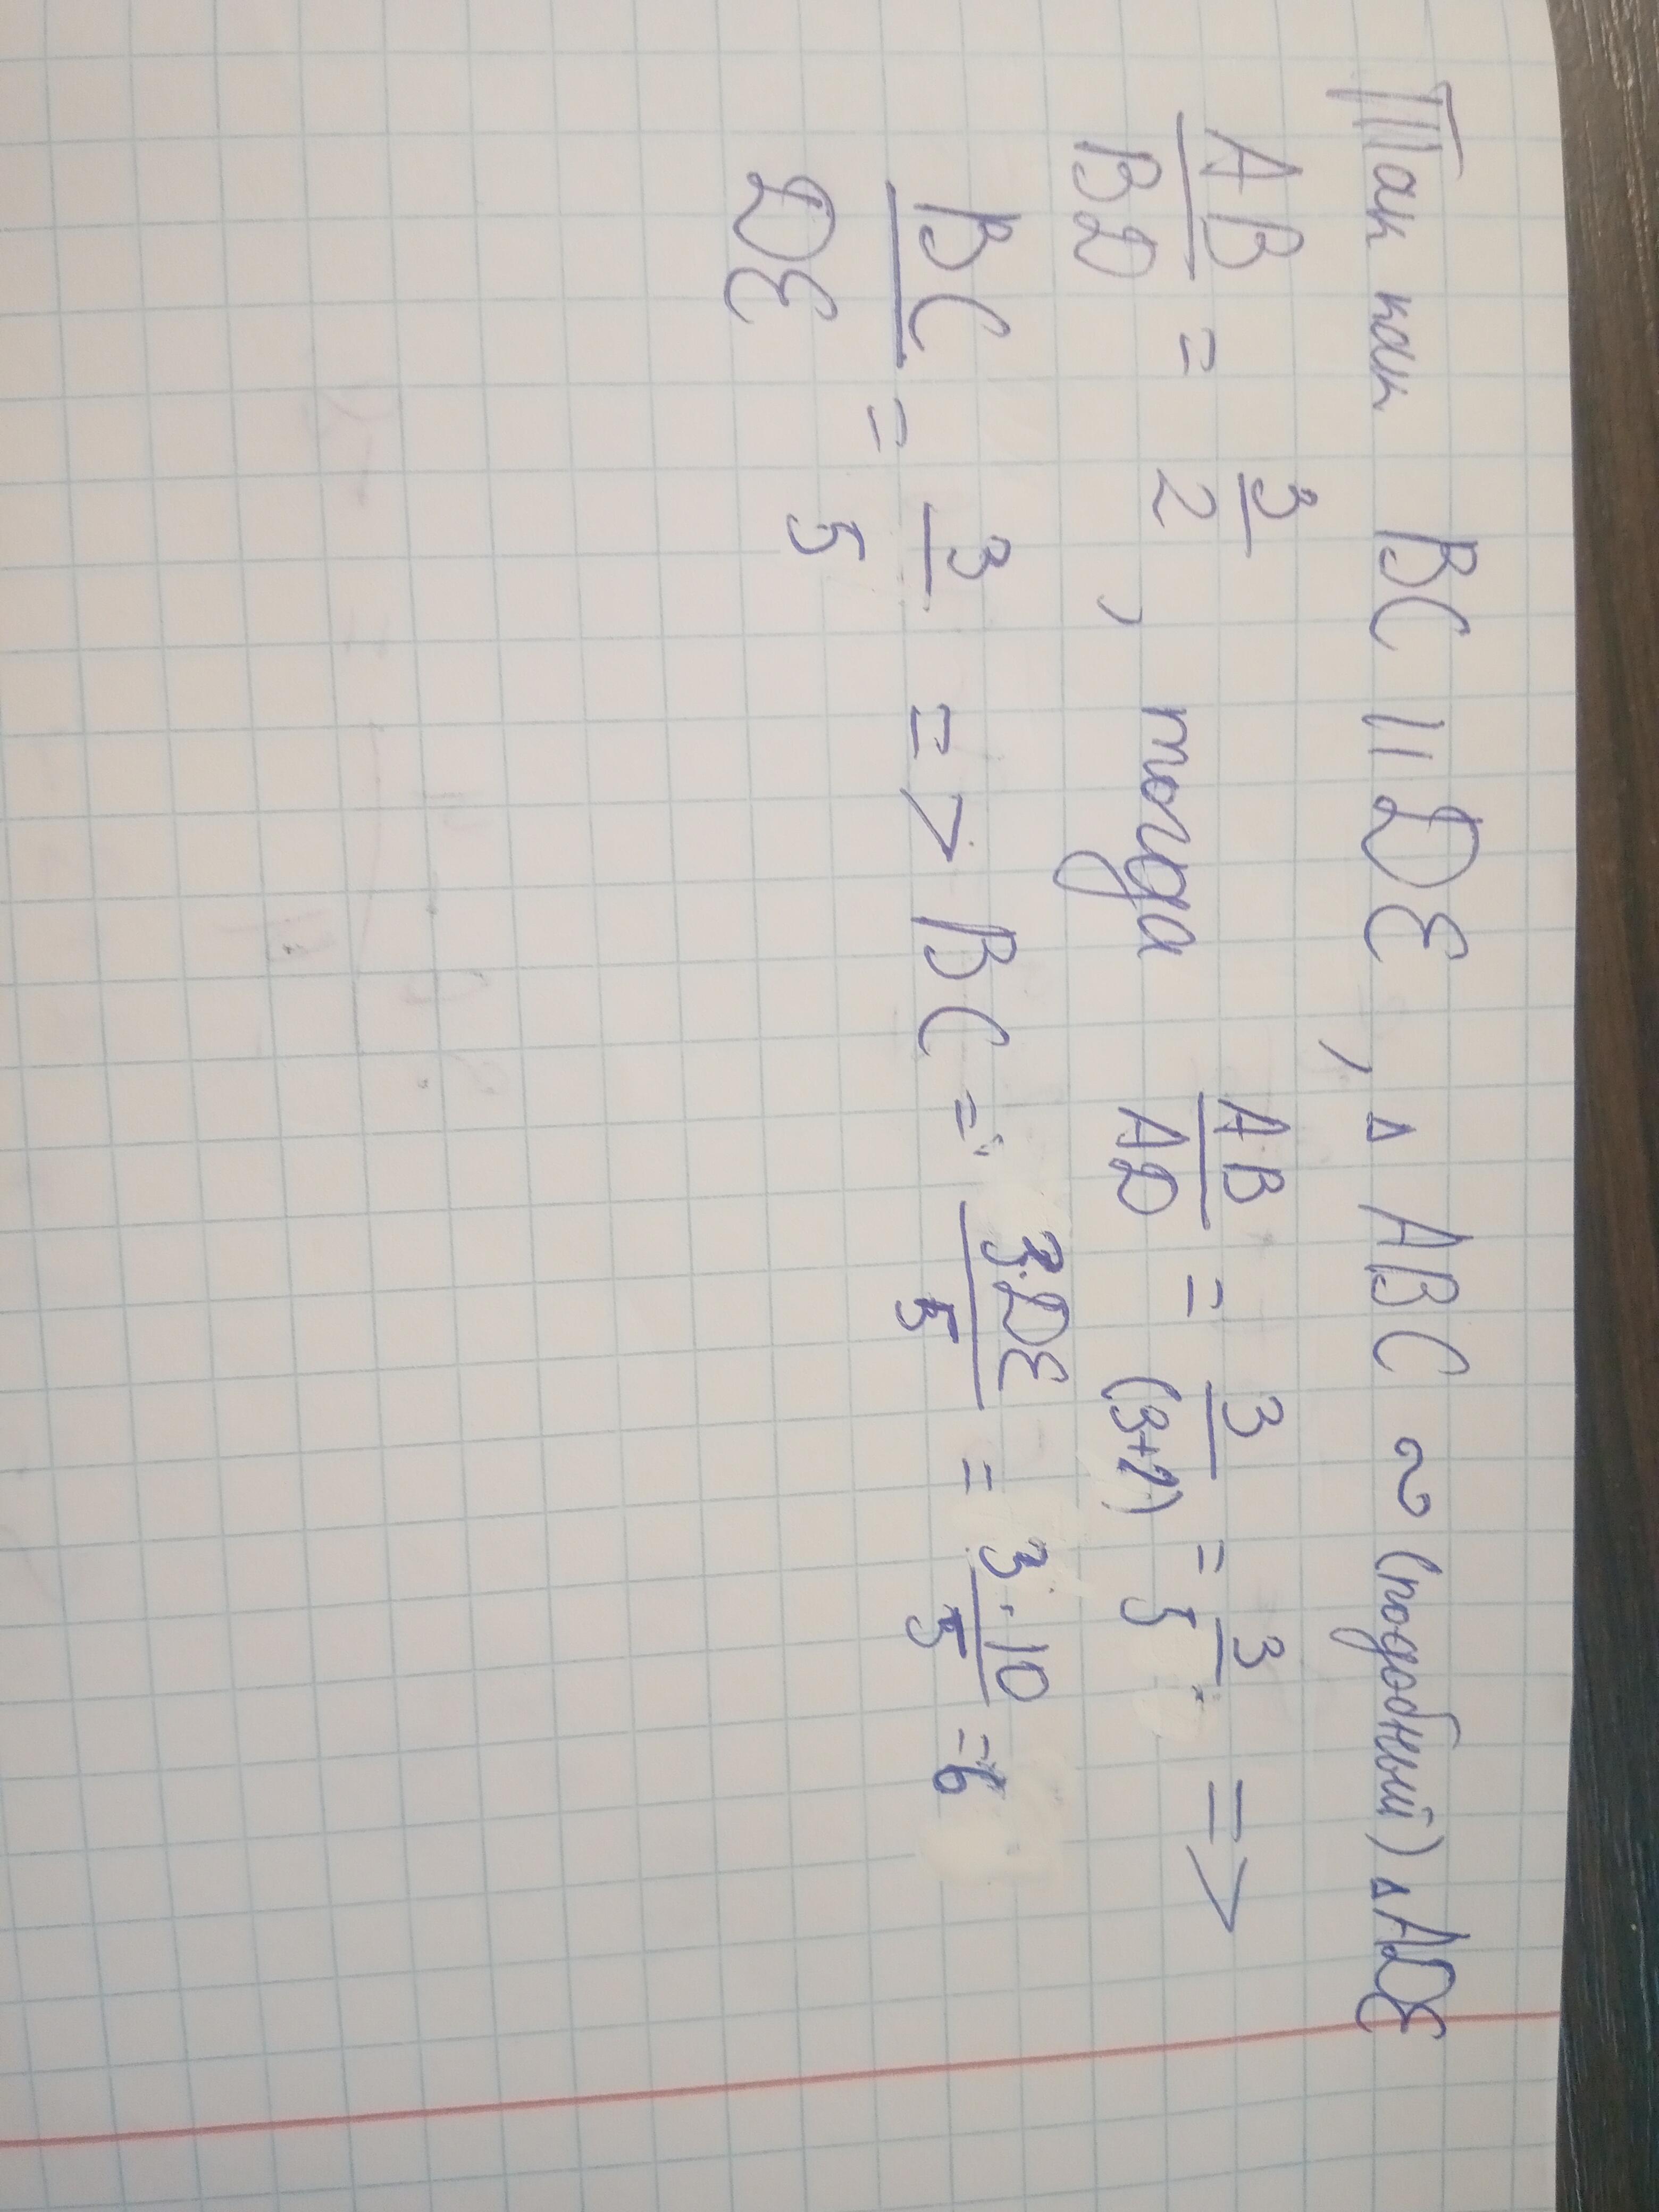 Так как BC || DE, △ ABC ~ (подобный) △ ADE
AB/BD = 3/2, тогда AB/AD = 3/(3+2) = 3/5 =>
BC/DE = 3/5 => BC = 3·DE/5 = 3·10/5 = 6